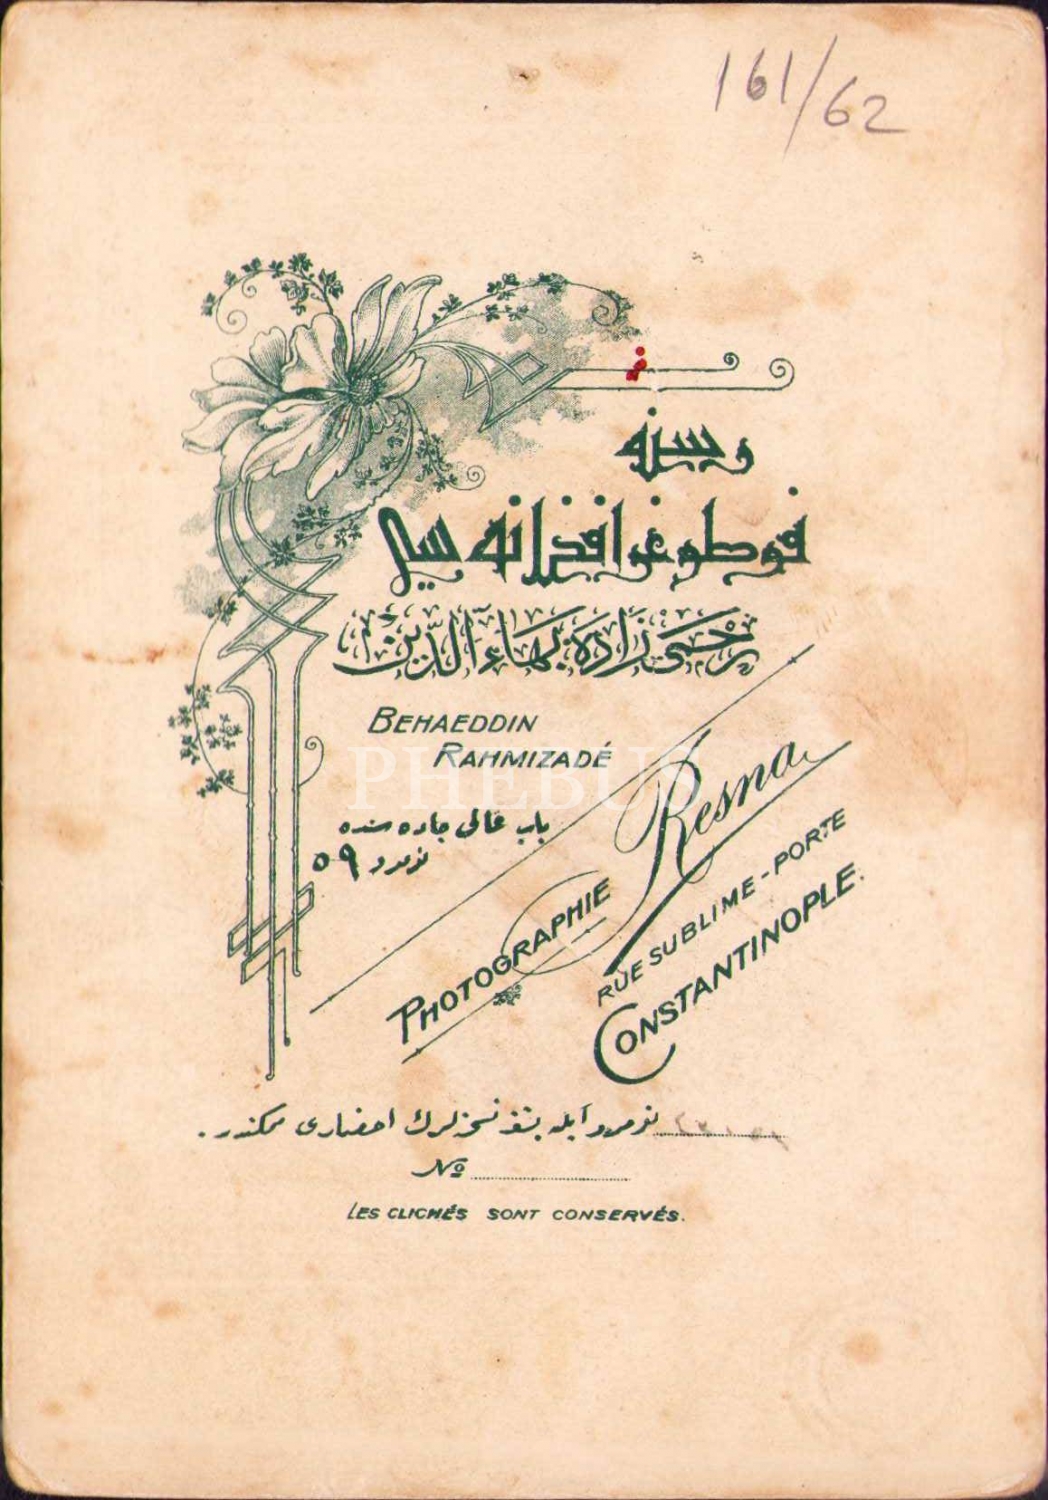 161/62
رسنه
فوطوغرافخانه سی
رحمی زاده بهاء الدین
BEHAEDDIN
RAHMIZADÉ
PHEBUS
باب عالی جاده سنده
نومرو ٥٩
Resna
PHOTOGRAPHIE
RUE SUBLIME-PORTE
CONSTANTINOPLE.
نومرو ایله نسخه لرك احضاری ممکندر.
No
LES CLICHÉS SONT CONSERVÉS.